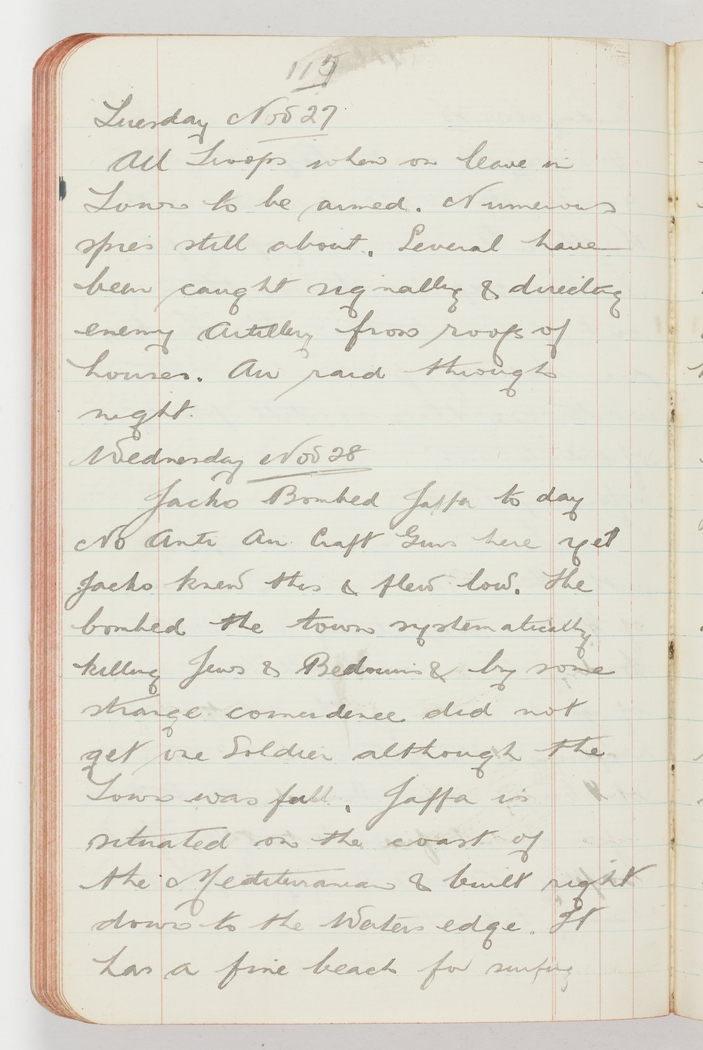 115
Tuesday Nov 27
All Troops when on leave in
Town to be armed. Numerous
spies still about. Several have
been caught signalling & directing
enemy Artillery from roofs of
houses. Air raid through
night.
Wednesday Nov 28
Jacko Bombed Jaffa to day
No Anti Air Craft Guns here yet
Jacko knew this & flew low. He
bombed the town systematically
killing Jews & Bedouins & by some
strange comendence did not
get one Soldier although the
Town was full. Jaffa is
situated on the coast of
the Mediterranean & built right
down to the Waters edge. It
has a fine beach for surfing